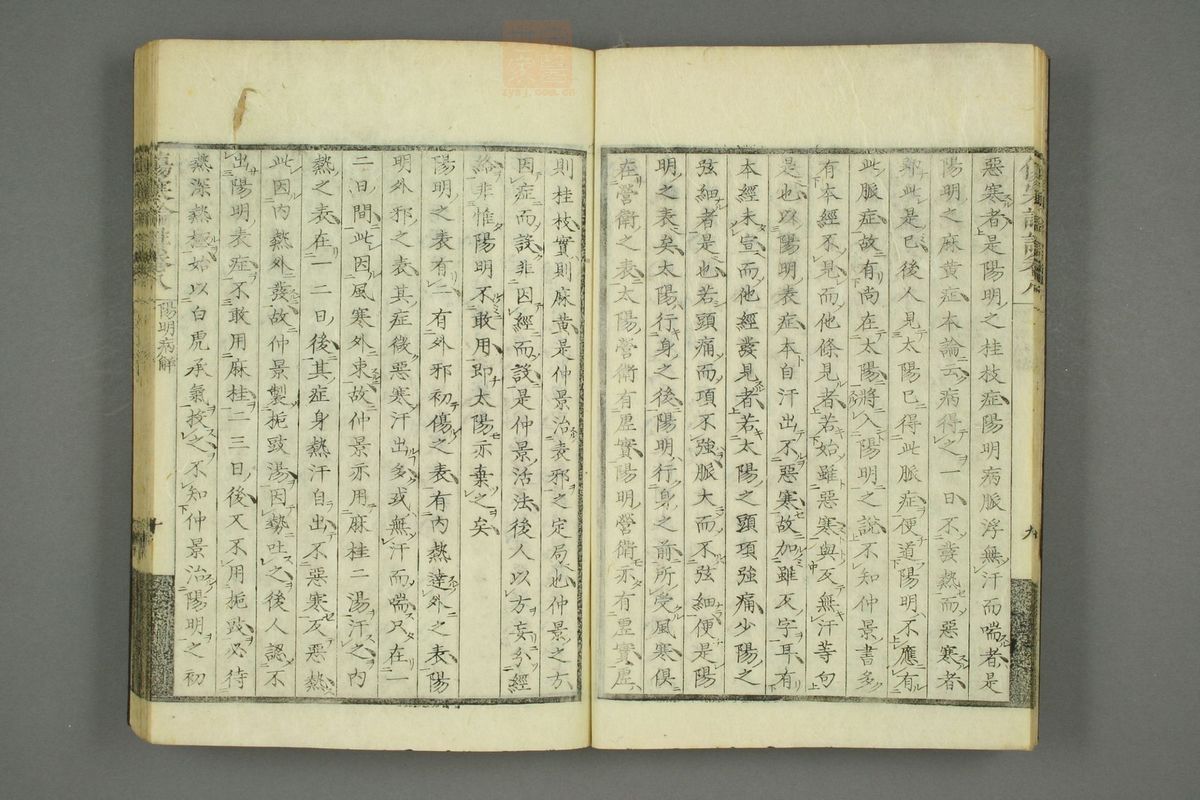 惡寒者是陽明之桂枝症陽明病脈浮無汗而喘者是
陽明之麻黄症本論云病得之一日不發熱而惡寒者
即此是已後人見太陽已得此脈症便道陽明不應有
此脈症故有尚在太陽將入陽明之說不知仲景書多
有本經不見而他條見者若始雖惡寒與反無汗等句
是也以陽明表症本自汗出不惡寒故加雖反字耳有
本經未宣而他經發見者若太陽之頭項強痛少陽之
弦細者是也若頭痛而項不強脈大而不弦細便是陽
明之表矣太陽行身之後陽明行身之前所受風寒俱
在營衛之表太陽營衛有虛實陽明營衛亦有虛實虛
則桂枝實則麻黄是仲景治表邪之定局也仲景之方
因症而設非因經而設是仲景活法後人以方妄分經
絡非惟陽明不敢用即太陽亦棄之矣
陽明之表有二有外邪初傷之表有内熱達外之表陽
明外邪之表其症微惡寒汗出多或無汗而喘只在一
二日間此因風寒外束故仲景亦用麻桂二湯汗之内
熱之表在一二日後其症身熱汗自出不惡寒反惡熱
此因内熱外發故仲景製梔豉湯因勢吐之後人認不
出陽明表症不敢用麻桂二三日後又不用梔豉必待
熱深熱極始以白虎承氣投之不知仲景治陽明之初
陽明病解
九
十